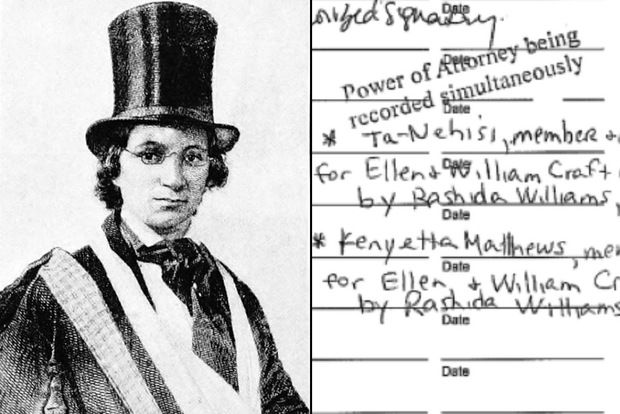 orized Signatory.
Date
Date
Power of Attorney being
recorded simultaneously
Date
* Ta-Nehisi, member
Date
for Ellen & William Craft
by Rashida Williams,
Date
* Kenyetta Matthews,
Date
for Ellen & William
by Rashida Williams
Date
Date